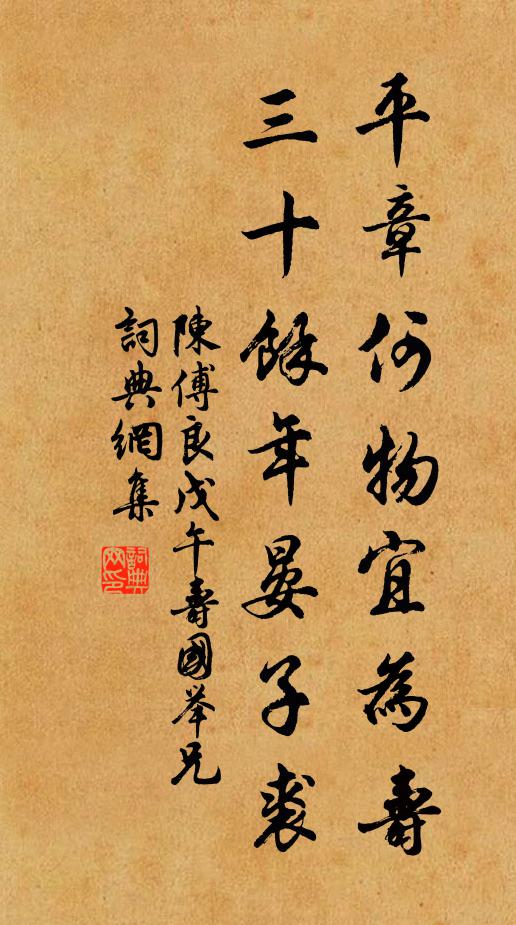 平章何物宜為壽
三十餘年晏子裘
陳傅良戊午壽國舉兄
詞典網集
詞典網印